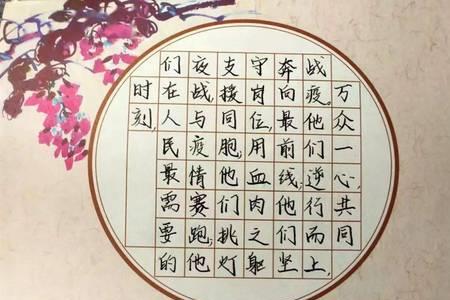 万众一心,共同
战疫。他们逆行而上,
奔向最前线;他们坚
守岗位,用血肉之躯
支援同胞;他们挑灯
夜战,与疫情赛跑;他
们在人民最需要的
时刻,